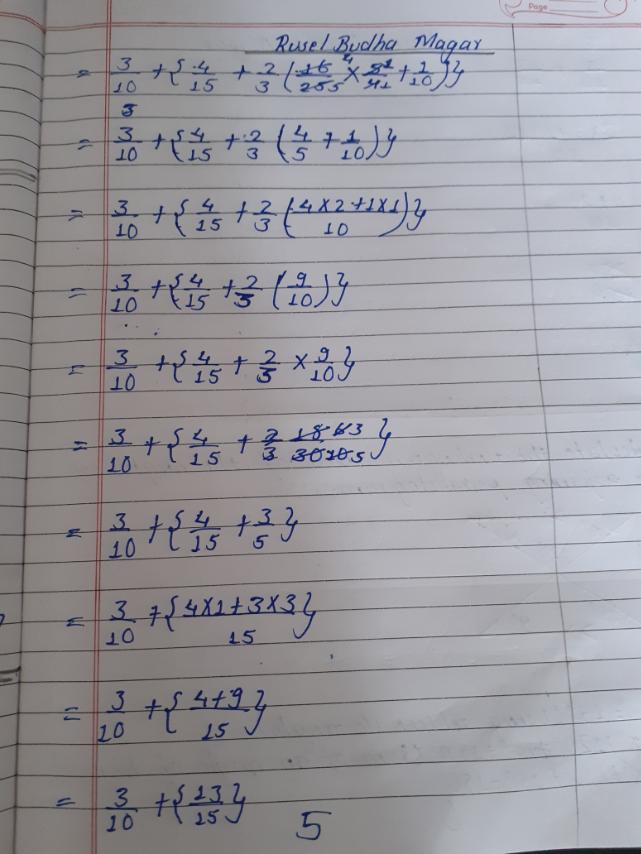 Page
Rusel Budha Magar
= 3/10 + { 4/15 + 2/3 ( 16/25 × + 1/10 ) }
= 3/10 + { 4/15 + 2/3 ( 4/5 + 1/10 ) }
= 3/10 + { 4/15 + 2/3 ( 4×2+1×1/10 ) }
= 3/10 + { 4/15 + 2/3 ( 9/10 ) }
= 3/10 + { 4/15 + 2/3 × 9/10 }
= 3/10 + { 4/15 + 2/3 18 6 3/30 10 5 }
= 3/10 + { 4/15 + 3/5 }
= 3/10 + { 4×1+3×3/15 }
= 3/10 + { 4+9/15 }
= 3/10 + { 13/15 }
5